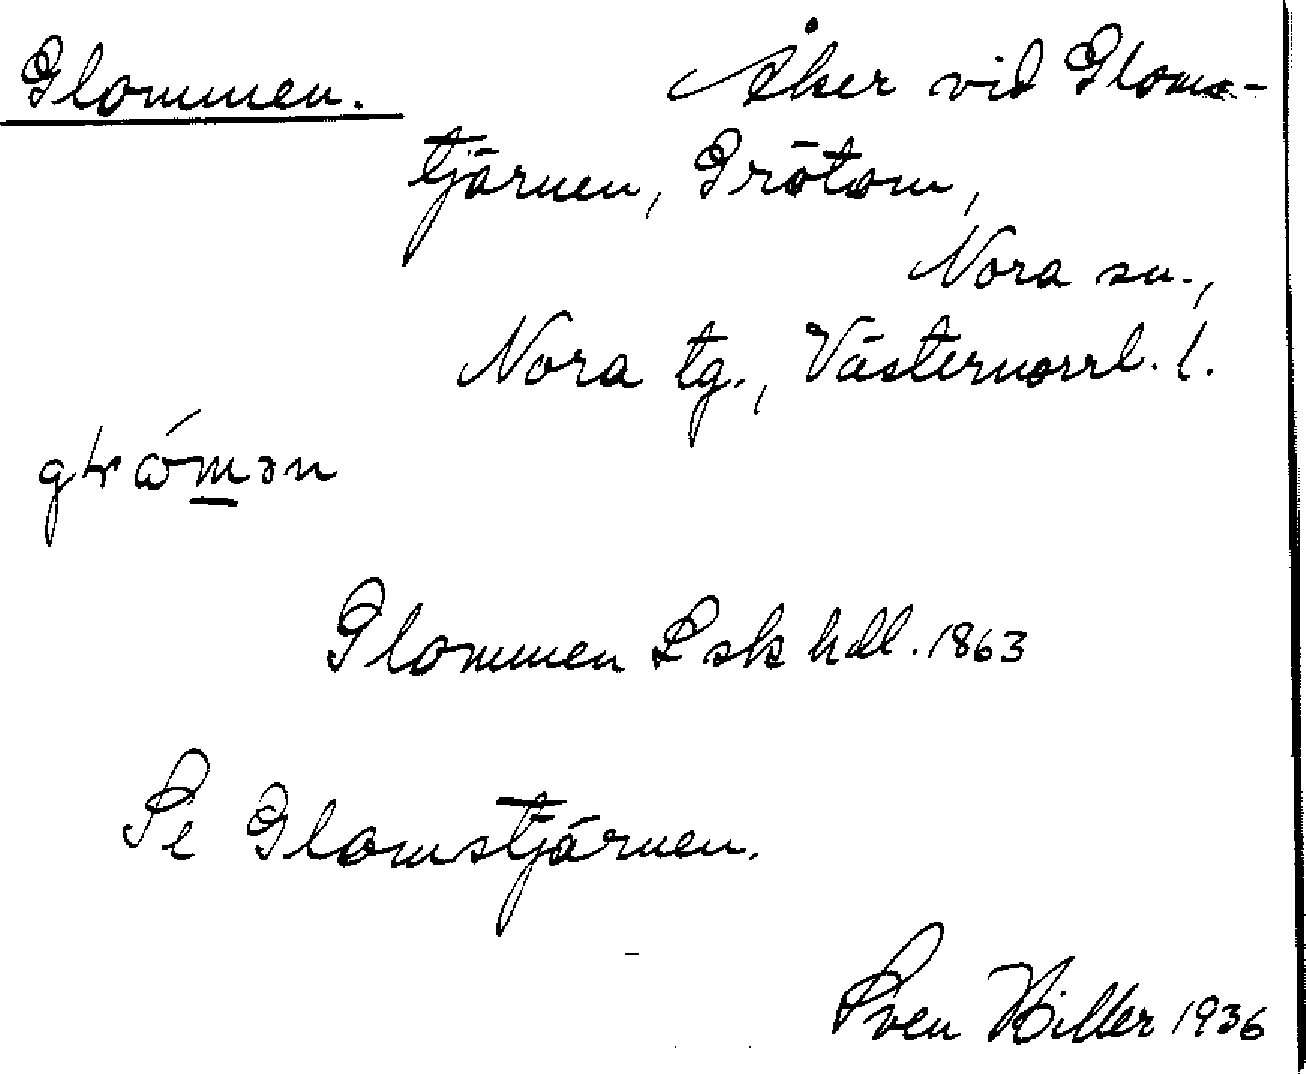 Glommen. Åker vid Gloms-
tjärnen, Grötom,
Nora sn.,
Nora tg., Västernorrl. l.
Glommen Lsk hdl. 1863
Se Glomstjärnen.
Sven Hiller 1936